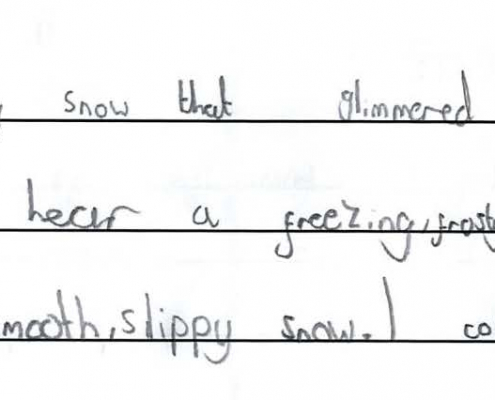 , snow that glimmered
hear a freezing, frosty
mooth, slippy snow. I co